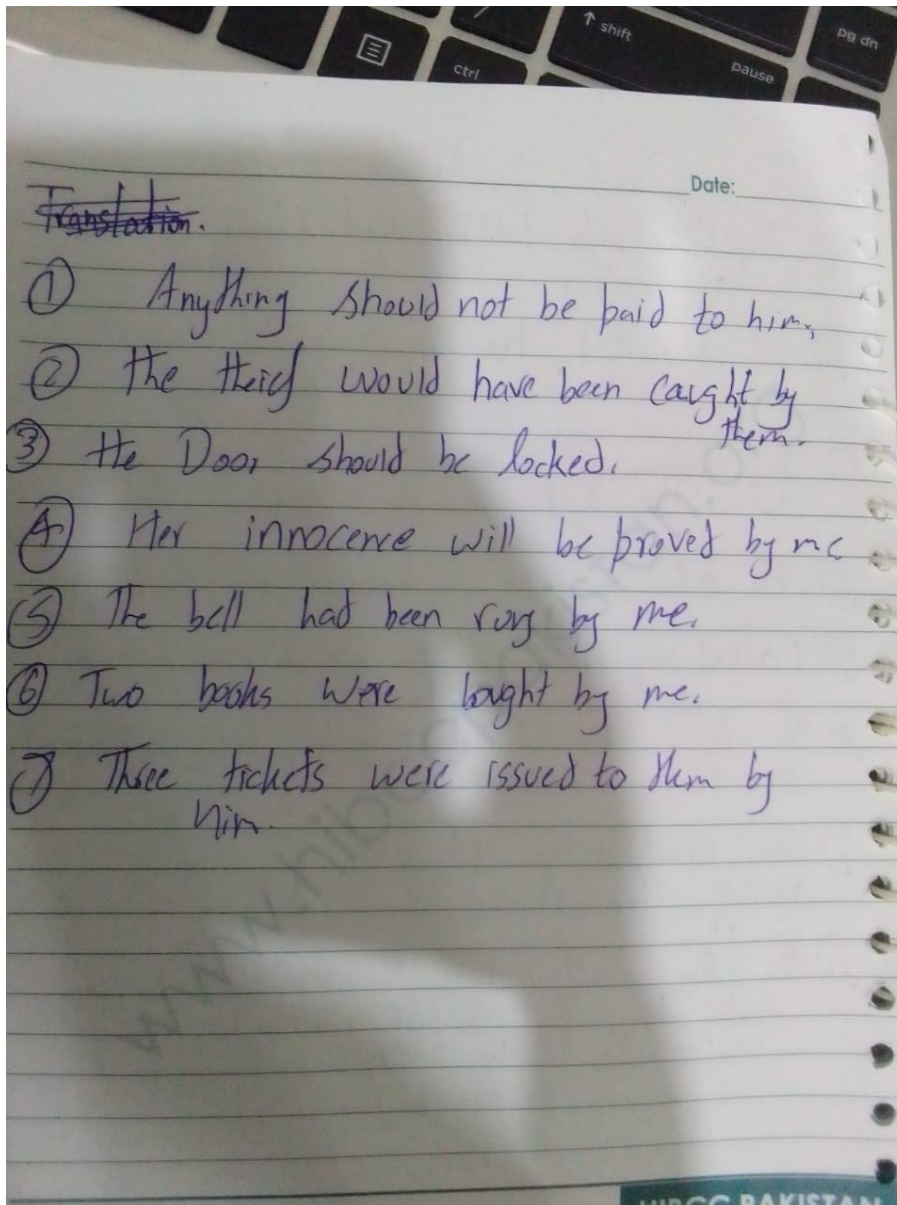 ↑ shift
pg dn
ctrl
pause
Date:
Translation.
① Anything should not be paid to him,
② the theief would have been caught by
them.
③ the Door should be locked.
④ Her innocence will be proved by me
⑤ The bell had been rung by me.
⑥ Two books were bought by me.
⑦ Three tickets were issued to them by
him.
PAKISTAN